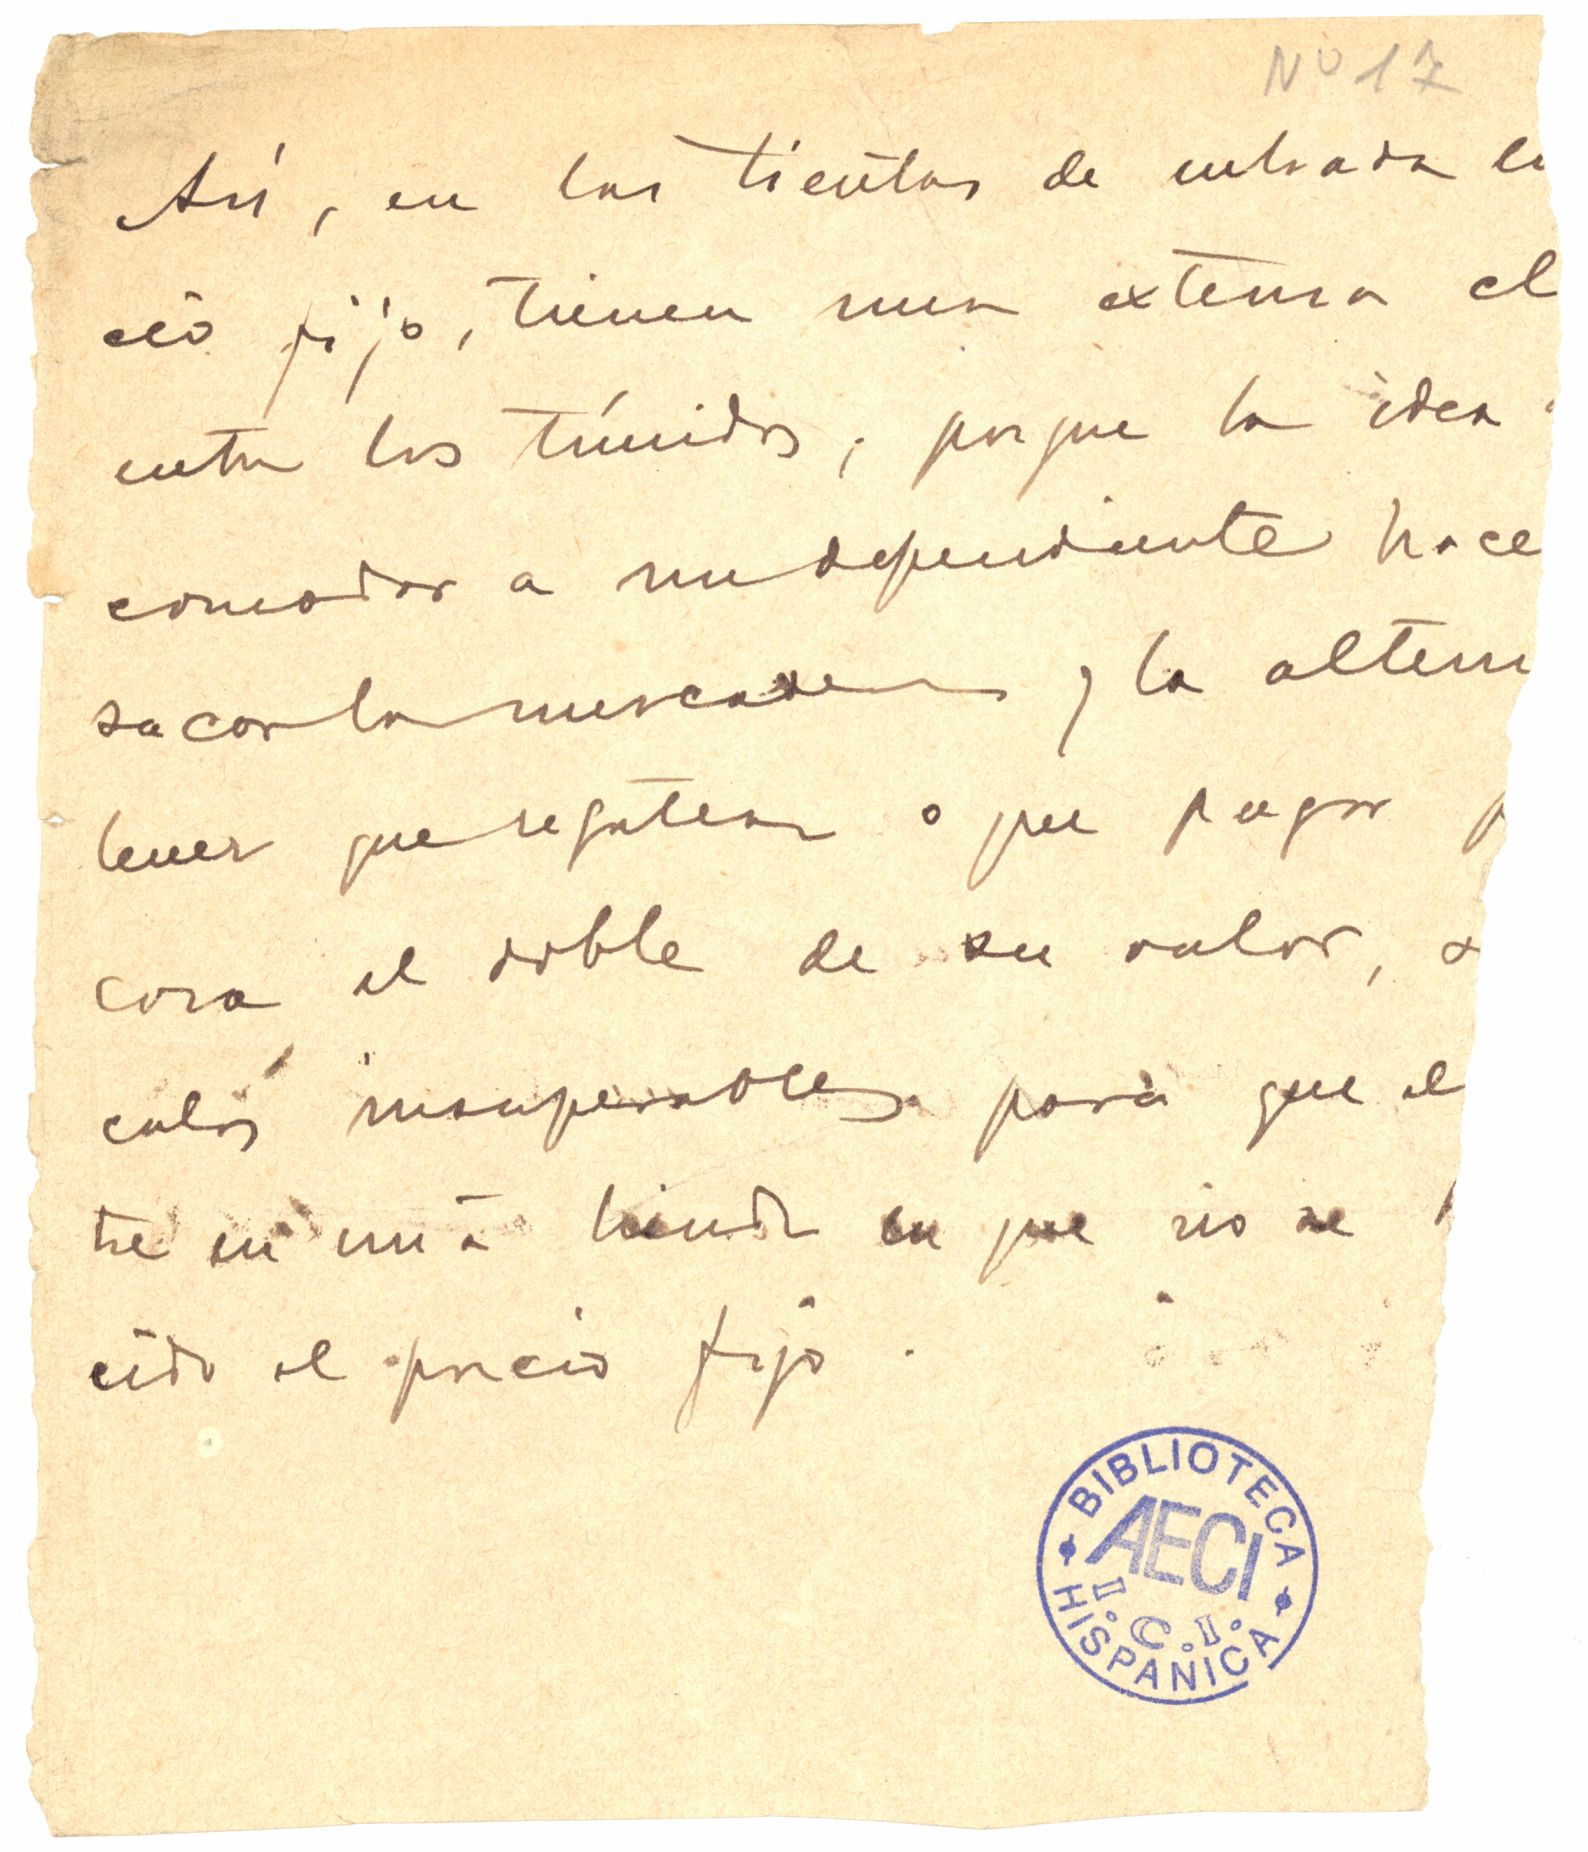 Nº 17
Así, en las tientas de entrada li
cio fijo, tienen una extensa cl
entre los tímidos, porque la idea
comodar a un dependiente hace
sacar la mercader y la altern
tener que regatear o que pagar p
cosa el doble de su valor, s
culos insuperables para que el
tre en una tienda en que no se
cido el precio fijo.
BIBLIOTECA
AECI
I.C.I.
HISPANICA